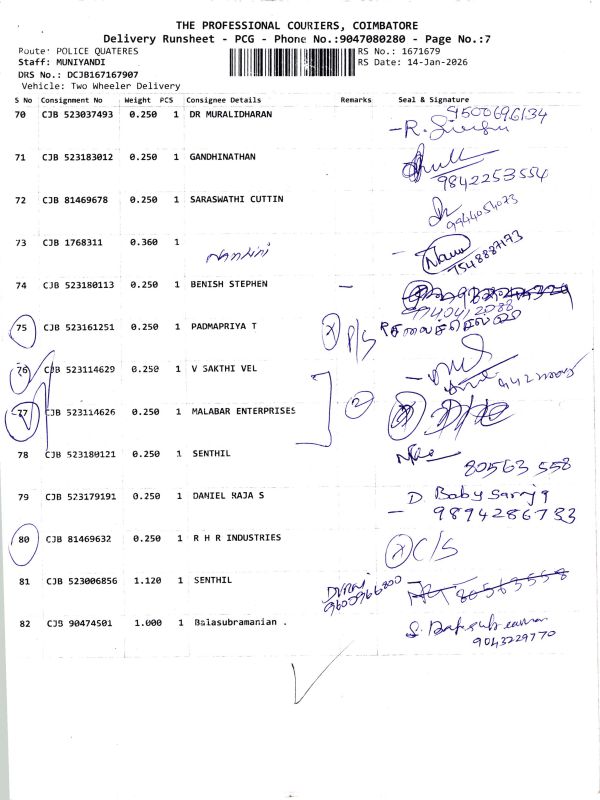 THE PROFESSIONAL COURIERS, COIMBATORE
Delivery Runsheet - PCG - Phone No.:9047080280 - Page No.:7
Route: POLICE QUATERES RS No.: 1671679
Staff: MUNIYANDI RS Date: 14-Jan-2026
DRS No.: DCJB167167907
Vehicle: Two Wheeler Delivery
S No Consignment No Weight PCS Consignee Details Remarks Seal & Signature
70 CJB 523037493 0.250 1 DR MURALIDHARAN 9500696134
71 CJB 523183012 0.250 1 GANDHINATHAN
9842253554
72 CJB 81469678 0.250 1 SARASWATHI CUTTIN
9944054073
73 CJB 1768311 0.360 1
Nandhini
7548887173
74 CJB 523180113 0.250 1 BENISH STEPHEN
75 CJB 523161251 0.250 1 PADMAPRIYA T P/S
76 CJB 523114629 0.250 1 V SAKTHI VEL
77 CJB 523114626 0.250 1 MALABAR ENTERPRISES 2
78 CJB 523180121 0.250 1 SENTHIL
80563 558
79 CJB 523179191 0.250 1 DANIEL RAJA S D Baby saroja
9894286733
80 CJB 81469632 0.250 1 R H R INDUSTRIES C/S
81 CJB 523006856 1.120 1 SENTHIL
82 CJB 90474501 1.000 1 Balasubramanian . S. Balasubramanian
9043229770